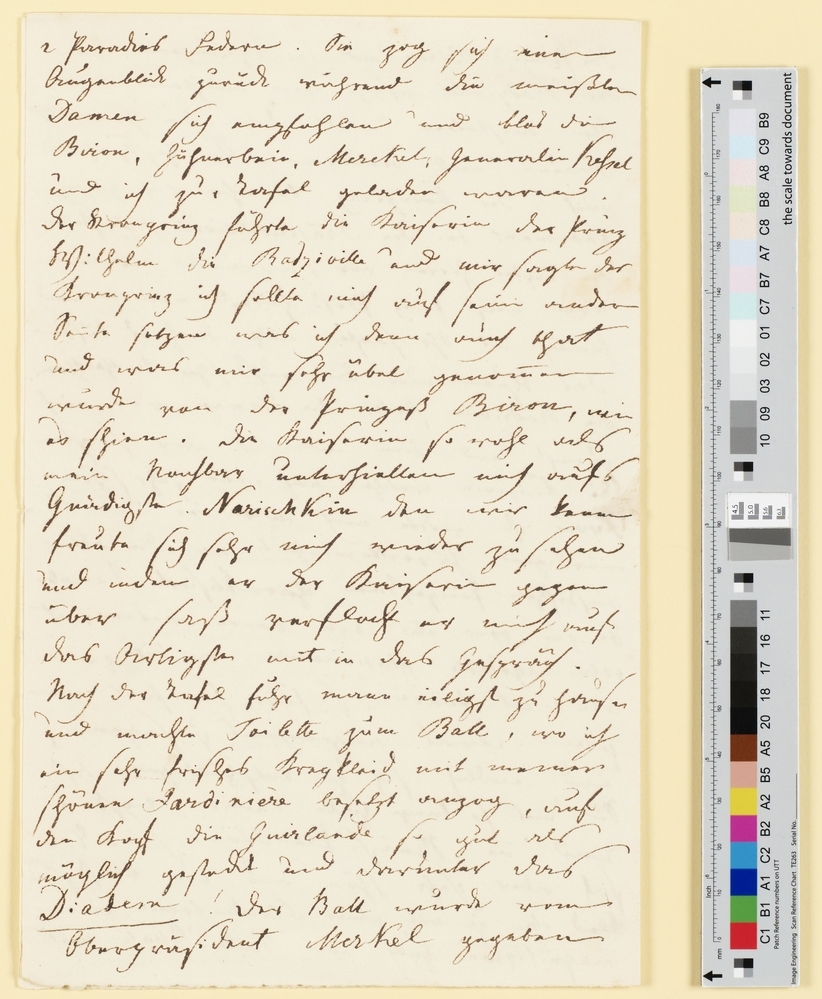 2 Paradies Federn. Sie zog sich einen
Augenblick zurück während die meisten
Damen sich empfahlen und blos die
Biron, Hühnerbein, Merckel, Generalin Kessel
und ich zur Tafel geladen waren.
der Kronprinz führte die Kaiserin der Prinz
Wilhelm die Radziville und mir sagte der
Kronprinz ich sollte mich auf seine andere
Seite setzen was ich denn auch that
und was mir sehr übel genommen
wurde von der Prinzeß Biron, wie
es schien. die Kaiserin so wohl als
mein Nachbar unterhielten mich aufs
Gnädigste. Narischkin den wir kennen
freute sich sehr mich wieder zu sehen
und indem er der Kaiserin gegen
über saß verflocht er mich auf
das Artigste mit in das Gespräch.
Nach der Tafel fuhr mann eiligst zu Hause
und machte Toilette zum Ball, wo ich
ein sehr frisches Krepkleid mit meiner
schönen Jardinière besetzt anzog, auf
den Kopf die Guirlande so gut als
möglich gesteckt und darunter das
Diadem! Der Ball wurde vom
Oberpräsident Merkel gegeben